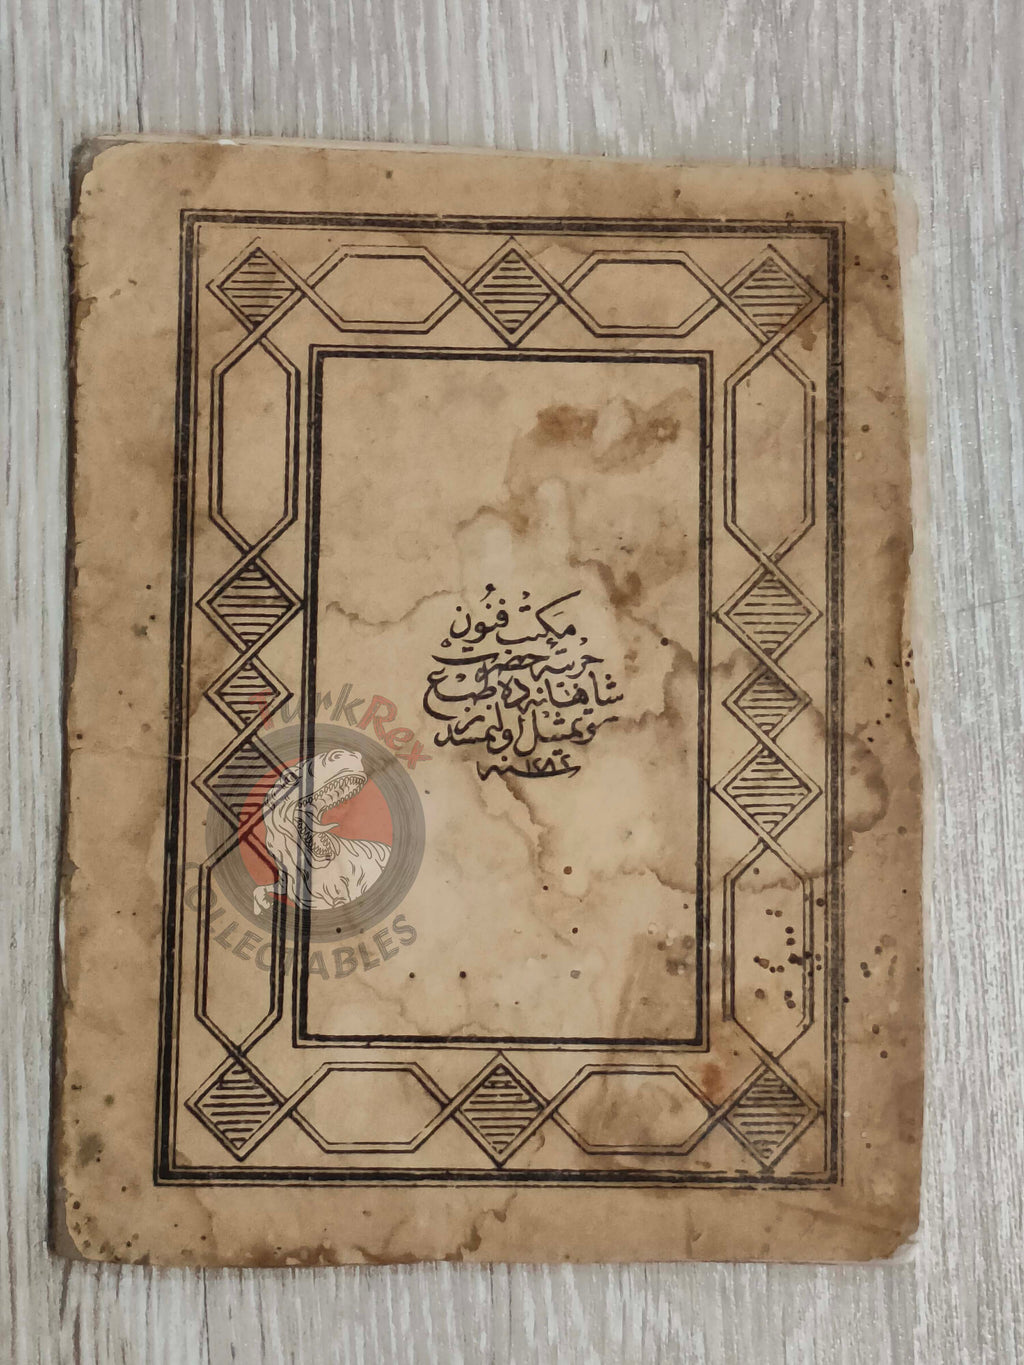 مكتب فنون
حربيهٔ حضرت
شاهانه ده طبع
و تمثيل اولنمشدر
سنه ١٢٨٢
TurkRex
COLLECTABLES